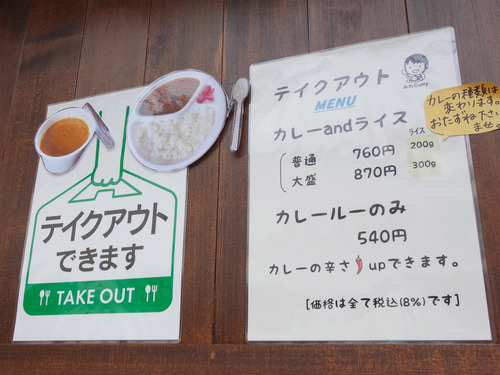 テイクアウト
できます
TAKE OUT
テイクアウト
MENU
カレーandライス
ライス
普通 760円 200g
大盛 870円 300g
カレールーのみ
540円
カレーの辛さupできます。
[価格は全て税込(8%)です]
カレーの種類は
変わります。
おたずね下さい
ませ。